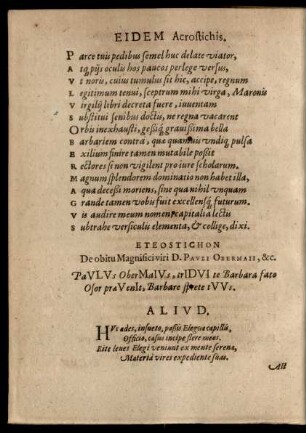 EIDEM Acrostichis.
Parce tuis pedibus semel huc delate viator,
Atq; pijs oculis hos paucos perlege versus,
Vt noris, cuius tumulus sit hic, accipe, regnum
Legitimum tenui, sceptrum mihi virga, Maronis
Virgilij libri decreta fuere, iuventam
Substitui senibus doctis, ne regna vacarent
Orbu inexhausti, gessiq; gravissima bella
Barbariem contra, qua quamvis undiq; pulsa
Exilium finire tamen mutabile possit
Rectores si non vigilent pro iure scholarum.
Magnum splendorem dominatio non habet illa,
A qua decessi moriens, sine qua nihil unquam
Grande tamen vobis fuit excellensq; futurum.
Vis audire meum nomen? capitalia lectu
Subtrahe versiculi elementa, & collige, dixi.
ETEOSTICHON
De obitu Magnifici viri D. PAVLI OBERMAII, &c.
PaVLVs OberMaIVs, trIDVI te Barbara fato
Osor praVenIt, Barbare
ALIVD.
HVc ades, insueto, passis Elegeia capillis,
Officio, casus incipe flere meos.
Rite leves Elegi veniunt ex mente serena,
Materia vires expediente suas.